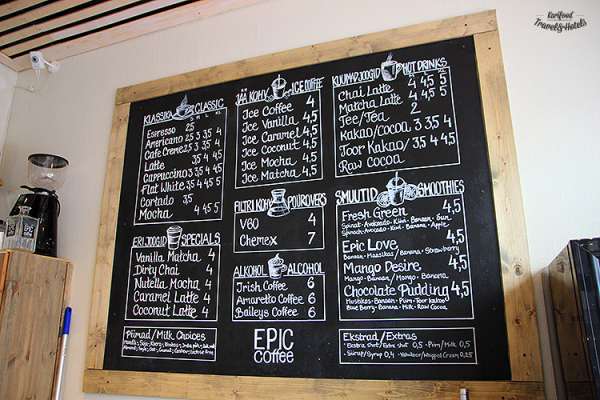 Karifood
Travel&Hotels
KLASSIKA CLASSIC
S M L XL
Espresso 2,5
Americano 2,5 3 3,5 4
Cafe Creme 2,5 3,5 4
Latte 3,5 4 4,5 5
Cappuccino 3,5 4
Flat White 3,5 4 4,5
Cortado 3,5
Mocha 3,5 4 4,5
ERIJOOGID SPECIALS
Vanilla Matcha 4
Dirty Chai 4
Nutella Mocha 4
Caramel Latte 4
Coconut Latte 4
Piimad/Milk Choices
JÄÄ KOHV ICE COFFEE
Ice Coffee 4
Ice Vanilla 4,5
Ice Caramel 4,5
Ice Coconut 4,5
Ice Mocha 4,5
Ice Matcha 4,5
FILTRI KOHV POUROVERS
V60 4
Chemex 7
ALKOHOL ALCOHOL
Irish Coffee 6
Amaretto Coffee 6
Baileys Coffee 6
EPIC
Coffee
KUUMAD JOOGID HOT DRINKS
Chai Latte 4 4,5 5
Matcha Latte 4 4,5 5
Tee/Tea 2
Kakao/Cocoa 3 3,5 4
Toor Kakao/ 3,5 4 4,5
Raw Cocoa
SMUUTID SMOOTHIES
Fresh Green 4,5
Spinach-Avocado-Kiwi-Banana-Apple
Epic Love 4,5
Banaan-Maasikas/Banana-Strawberry
Mango Desire 4,5
Mango-Banaan/Mango-Banana
Chocolate Pudding 4,5
Mustikas-Banaan-Piim-Toor kakao/
Blue Berry-Banana-Milk-Raw Cocoa
Ekstrad/Extras
Ekstra shot/Extra shot 0,5 - Piim/Milk 0,5
Siirup/Syrup 0,4 - Vahukoor/Whipped Cream 0,25